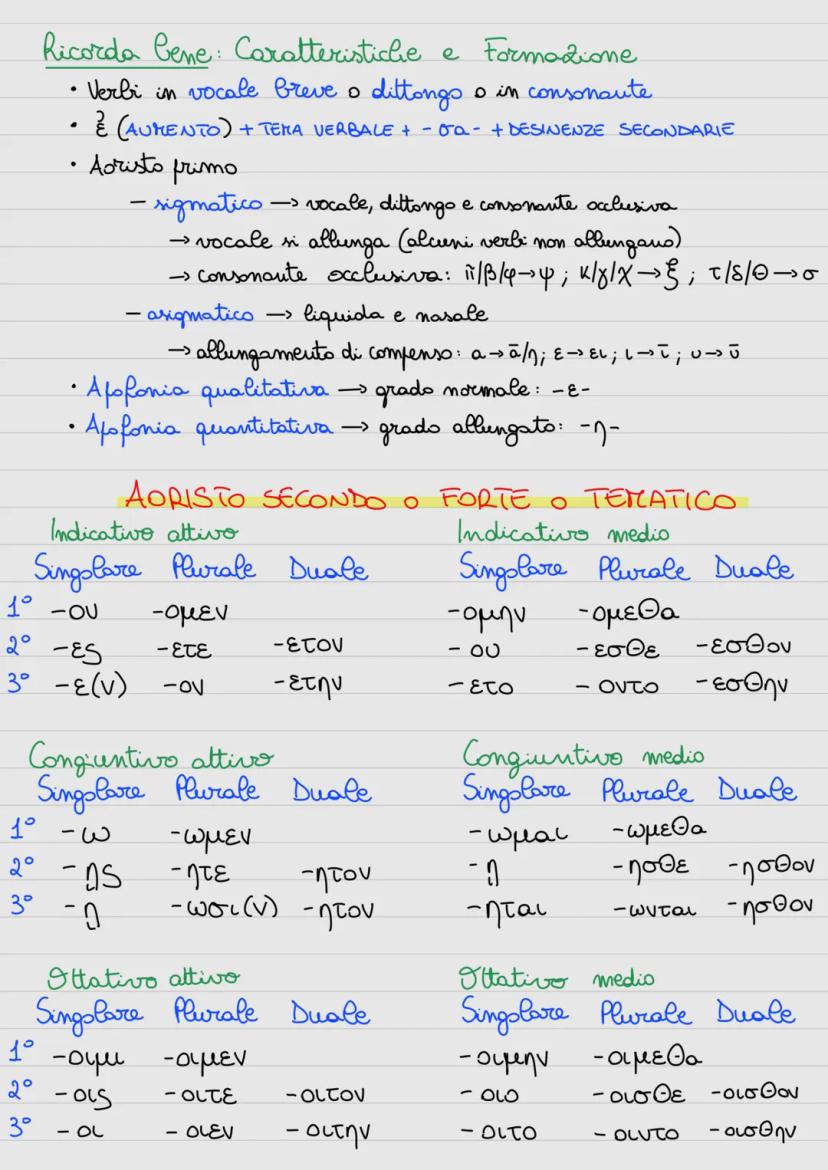 Ricorda bene: Caratteristiche e Formazione
• Verbi in vocale breve o dittongo o in consonante
• ἐ (AUMENTO) + TEMA VERBALE + -σα- + DESINENZE SECONDARIE
• Aoristo primo
– sigmatico → vocale, dittongo e consonante occlusiva
→ vocale si allunga (alcuni verbi non allungano)
→ consonante occlusiva: π/β/φ→ψ; κ/γ/χ→ξ; τ/δ/θ→σ
– asigmatico → liquida e nasale
→ allungamento di compenso: α→ᾱ/η; ε→ει; ι→ῑ; υ→ῡ
• Apofonia qualitativa → grado normale: -ε-
• Apofonia quantitativa → grado allungato: -η-
AORISTO SECONDO o FORTE o TEMATICO
Indicativo attivo Indicativo medio
Singolare Plurale Duale Singolare Plurale Duale
1° -ον -ομεν -ομην -ομεθα
2° -ες -ετε -ετον -ου -εσθε -εσθον
3° -ε(ν) -ον -ετην -ετο -οντο -εσθην
Congiuntivo attivo Congiuntivo medio
Singolare Plurale Duale Singolare Plurale Duale
1° -ω -ωμεν -ωμαι -ωμεθα
2° -ῃς -ητε -ητον -ῃ -ησθε -ησθον
3° -ῃ -ωσι(ν) -ητον -ηται -ωνται -ησθον
Ottativo attivo Ottativo medio
Singolare Plurale Duale Singolare Plurale Duale
1° -οιμι -οιμεν -οιμην -οιμεθα
2° -οις -οιτε -οιτον -οιο -οισθε -οισθον
3° -οι -οιεν -οιτην -οιτο -οιντο -οισθην